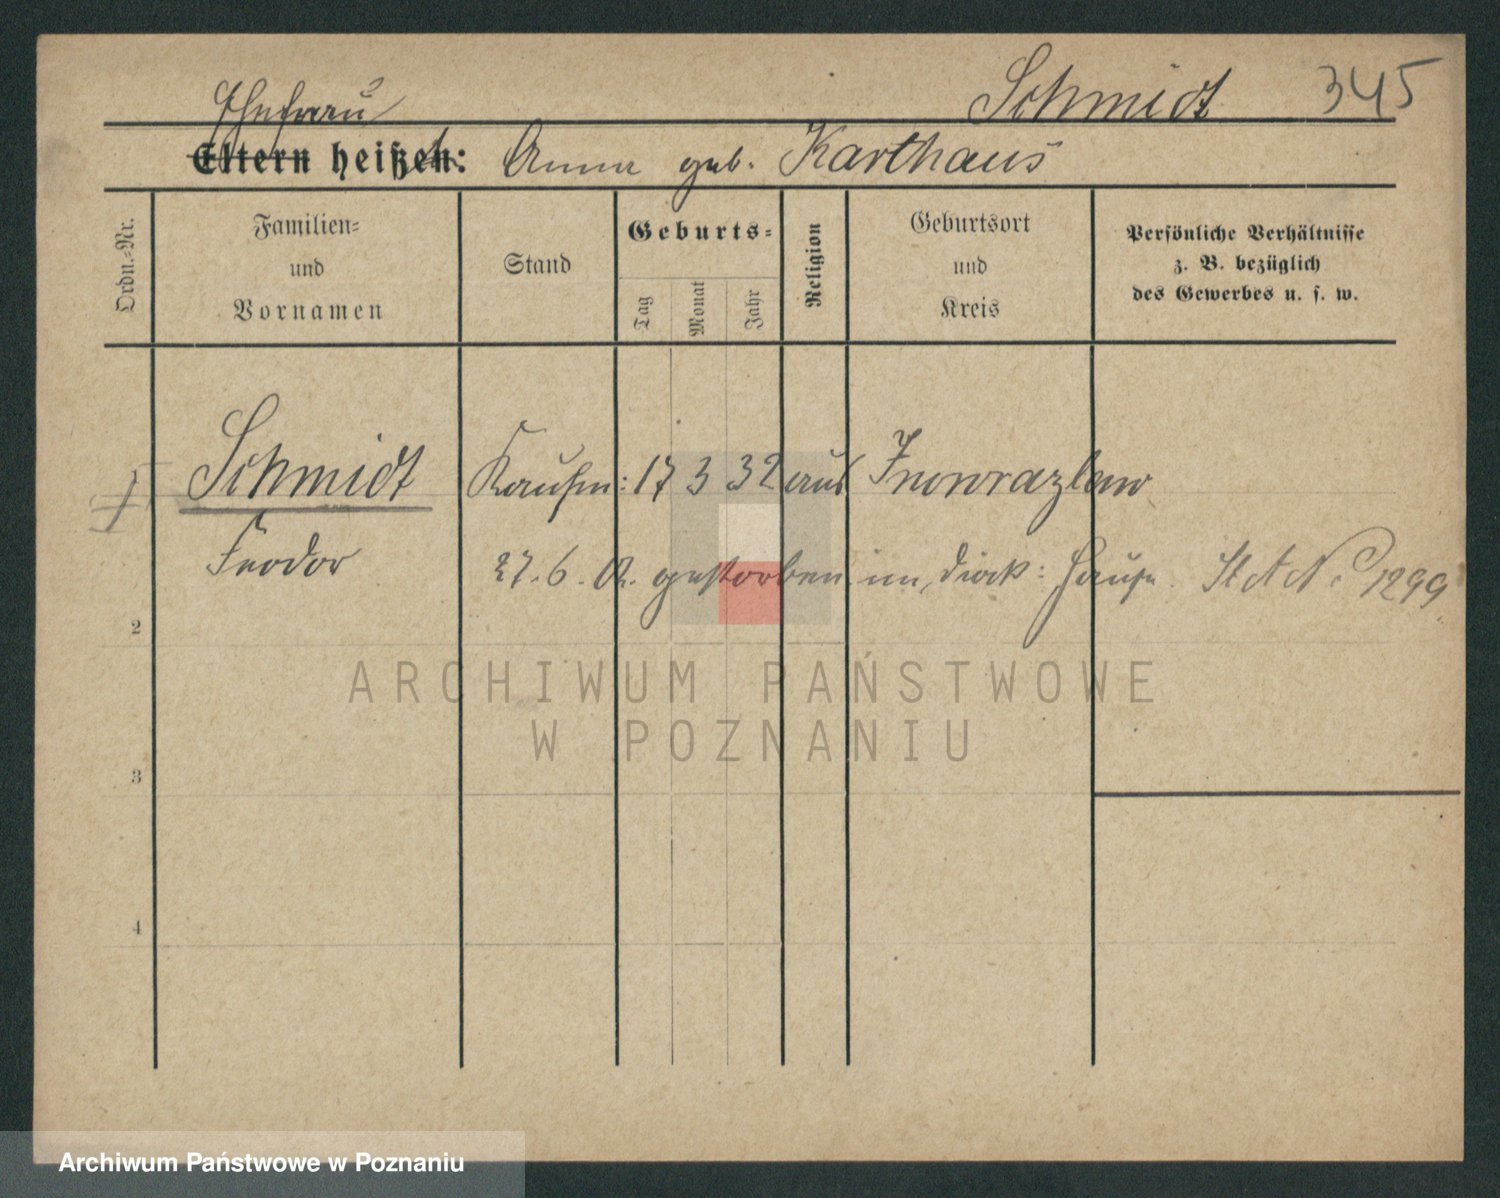 Schmidt 345
Ehefrau
Eltern heißen: Anna geb. Karthaus
Ordn.-Nr.
Familien-
und
Vornamen
Stand
Geburts-
Tag
Monat
Jahr
Religion
Geburtsort
und
Kreis
Persönliche Verhältnisse
z. B. bezüglich
des Gewerbes u. s. w.
Schmidt Kaufm: 17 3 32 aus Inowrazlaw
Feodor 27. 6. 02. gestorben im diak: Hause. St A No 1299
2
3
4
ARCHIWUM PAŃSTWOWE
W POZNANIU
Archiwum Państwowe w Poznaniu